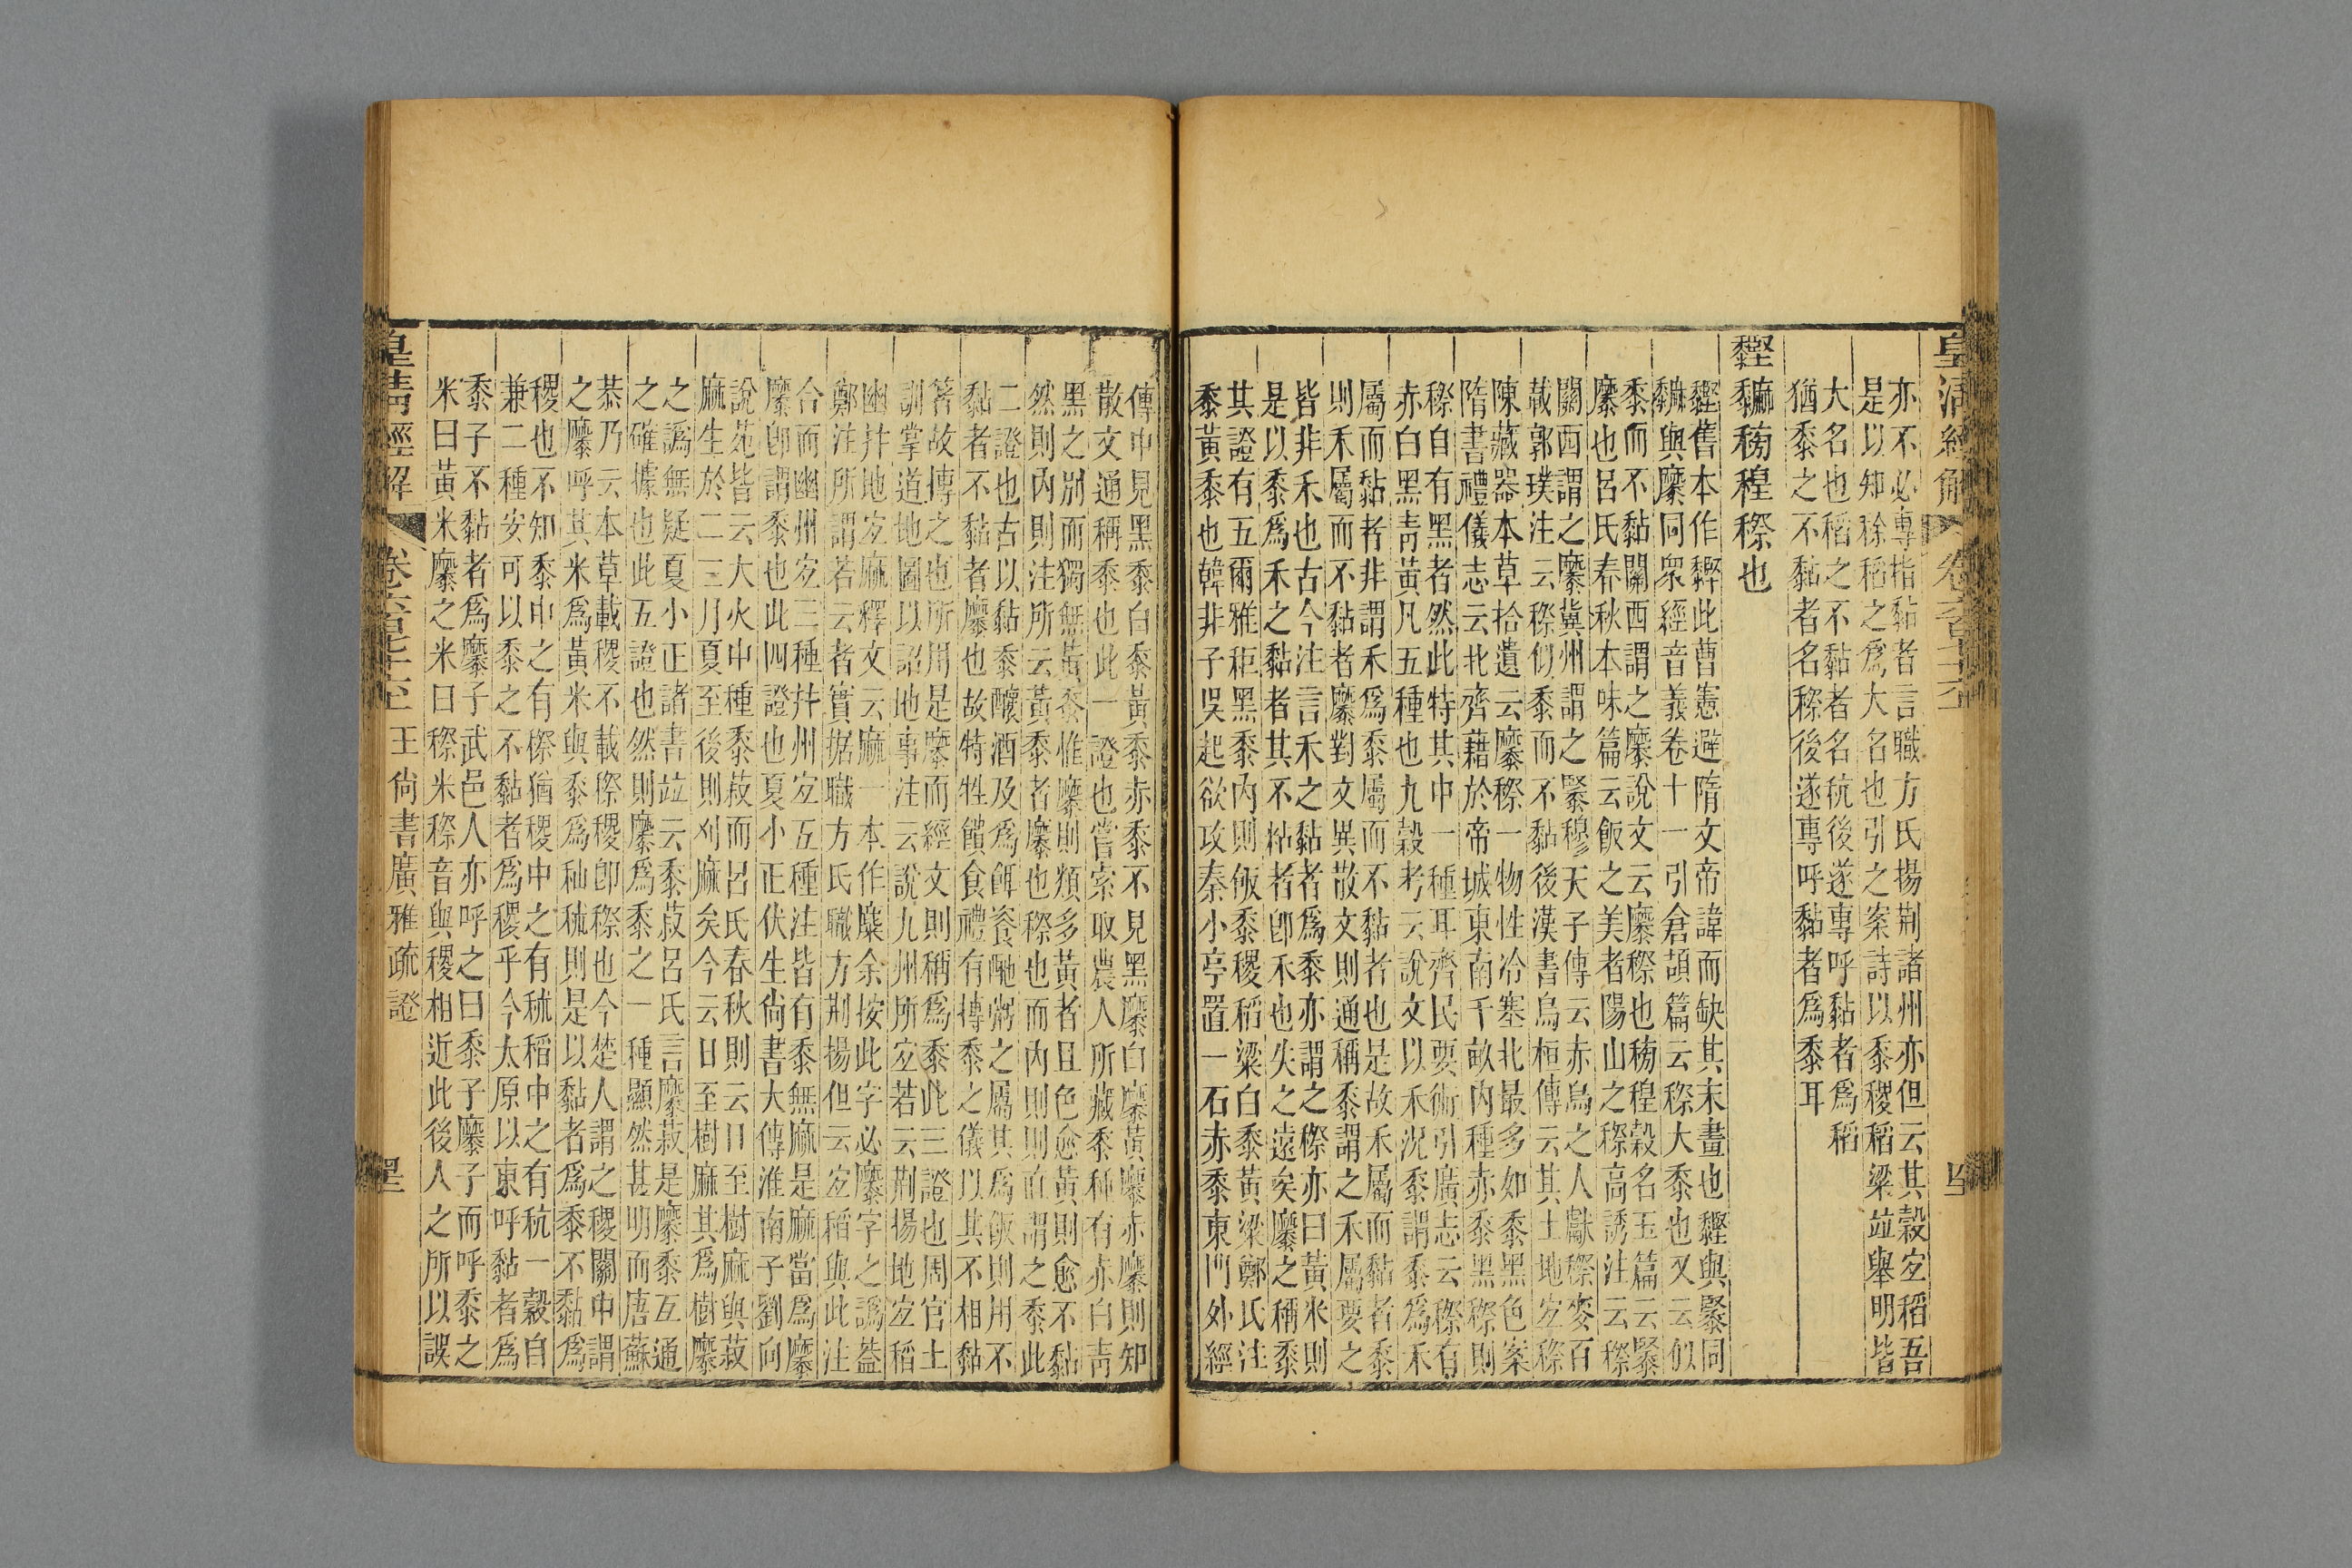 皇清經解
亦不必專指黏者言職方氏揚荊諸州亦但云其穀宐稻吾
是以知稌稻之爲大名也引之案詩以黍稷稻粱竝舉明皆
大名也稻之不黏者名秔後遂專呼黏者爲稻
猶黍之不黏者名穄後遂專呼黏者爲黍耳
穄也
舊本作此曹憲避隋文帝諱而缺其末畫也與同
與穈同眾經音義卷十一引倉頡篇云穄大黍也又云似
黍而不黏關西謂之穈說文云穈穄也䅭䅣穀名玉篇云穄
穈也呂氏春秋本味篇云飯之美者陽山之穄高誘注云穄
關西謂之穈冀州謂之穆天子傳云赤烏之人獻穄麥百
載郭璞注云穄似黍而不黏後漢書烏桓傳云其土地宐穄
陳藏器本草拾遺云穈穄一物性冷塞北最多如黍黑色案
隋書禮儀志云北齊藉於帝城東南千畝內種赤黍黑穄則
穄自有黑者然此特其中一種耳齊民要術引廣志云穄有
赤白黑靑黃凡五種也九穀考云說文以禾況黍謂黍爲禾
屬而黏者非謂禾爲黍屬而不黏者也是故禾屬而黏者黍
則禾屬而不黏者穈對文異散文則通稱黍謂之禾屬要之
皆非禾也古今注言禾之黏者爲黍亦謂之穄亦曰黃米則
是以黍爲禾之黏者其不粘者卽禾也失之遠矣穈之稱黍
其證有五爾雅秬黑黍內則飯黍稷稻粱白黍黃粱鄭氏注
黍黃黍也韓非子吳起欲攻秦小亭置一石赤黍東門外經
傳中見黑黍白黍黃黍赤黍不見黑穈白穈黃穈赤穈則知
散文通稱黍也此一證也嘗索取農人所藏黍種有赤白靑
黑之別而獨無黃黍惟穈則類多黃者且色愈黃則愈不黏
然則內則注所云黃黍者穈也穄也而內則則直謂之黍此
二證也古以黏黍釀酒及爲餌餈酏粥之屬其爲飯則用不
黏者不黏者穈也故特牲饋食禮有摶黍之儀以其不相黏
箸故摶之也所用是穈而經文則稱爲黍此三證也周官土
訓掌道地圖以詔地事注云說九州所宐若云荊揚地宐稻
幽幷地宐麻釋文云麻一本作穈余按此字必穈字之譌葢
鄭注所謂若云者實据職方氏職方荊揚但云宐稻與此注
合而幽州宐三種幷州宐五種注皆有黍無麻是麻當爲穈
穈卽謂黍也此四證也夏小正伏生尙書大傳淮南子劉向
說苑皆云大火中種黍菽而呂氏春秋則云日至樹麻與菽
麻生於二三月夏至後則刈麻矣今云日至樹麻其爲樹穈
之譌無疑夏小正諸書竝云黍菽呂氏言穈菽是穈黍互通
之確據也此五證也然則穈爲黍之一種顯然甚明而唐蘇
恭乃云本草載稷不載穄稷卽穄也今楚人謂之稷關中謂
之穈呼其米爲黃米與黍爲秈秫則是以黏者爲黍不黏爲
稷也不知黍中之有穄猶稷中之有秫稻中之有秔一穀自
兼二種安可以黍之不黏者爲稷乎今太原以東呼黏者爲
黍子不黏者爲穈子武邑人亦呼之曰黍子穈子而呼黍之
米曰黃米穈之米曰穄米穄音與稷相近此後人之所以誤
皇淸經解
王尙書廣雅疏證